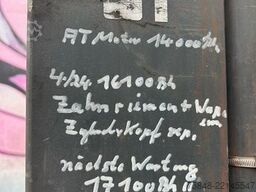 AT Motor 14000Bh
4/24 16100Bh
Zahnriemen + Wapu
Zylinderkopf rep.
nächste Wartung
17100Bh